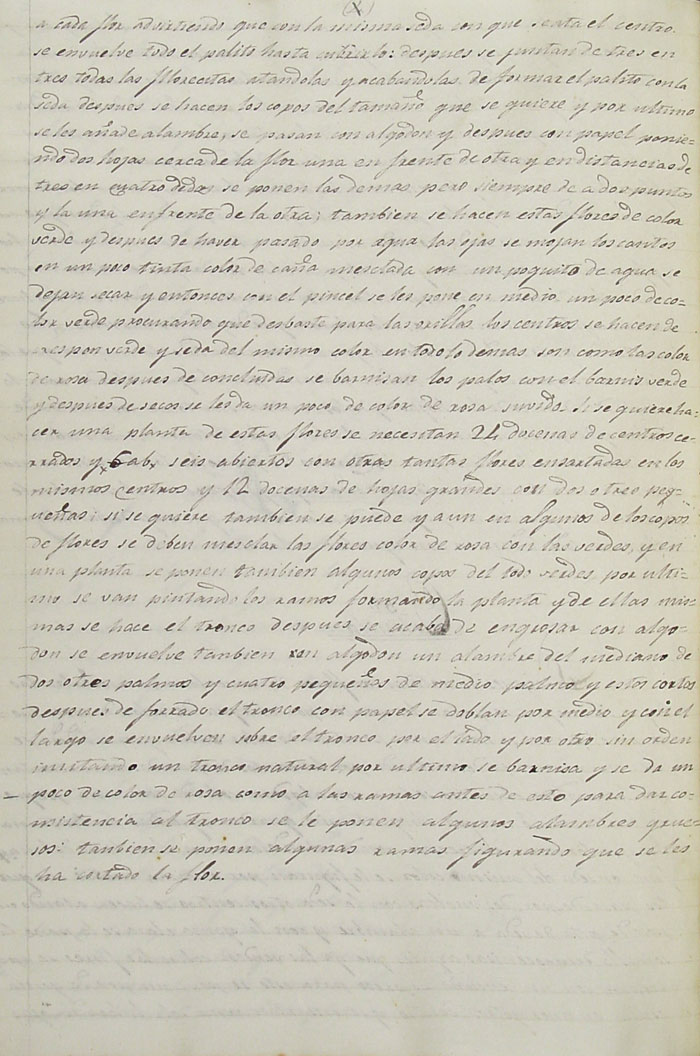 (X)
a cada flor advirtiendo que con la misma seda con que se ata el centro
se envuelve todo el palito hasta cubrirlo: despues se juntan de tres en
tres todas las fllorecitas atandolas y acabandolas de formar el palito con la
seda despues se hacen los copos del tamaño que se quiere y por ultimo
se les añade alambre, se pasan con algodon y despues con papel ponie-
ndo dos hojas cerca de la flor una en frente de otra y en distancias de
tres en cuatro dedos se ponen las demas, pero siempre de a dos puntos
y la una enfrente de la otra; tambien se hacen estas flores de color
verde y despues de haver pasado por agua las ojas se mojan los cantos
en un poco tinta color de caña mesclada con un poquito de agua se
dejan secar y entonces con el pincel se les pone en medio un poco de co-
lor verde procurando que desbasta para las orillas los centros se hacen de
crespon verde y seda del mismo color en todo lo demas son como las color
de rosa despues de concluidas se barnisan los palos con el barnis verde
y despues de secos se les da un poco de color de rosa suvido. Si se quiere ha-
cer una planta de estas flores se necesitan 24 docenas de centros ce-
rrados y 6 ab. seis abiertos con otras tantas flores ensartadas en los
mismos centros y 12 docenas de hojas grandes con dos o tres peq-
ueñas: si se quiere tambien se puede y aun en algunos de los copos
de flores se deben mesclar las flores color de rosa con las verdes, y en
una planta se ponen tambien algunos copos del todo verdes, por ulti-
mo se van pintando los ramos formando la planta y de ellas mis-
mas se hace el tronco despues se acaba de engrosar con algo-
don se envuelve tanbien con algodon un alambre del mediano de
dos o tres palmos y cuatro pequeños de medio palmo y estos cortos
despues de forrado el tronco con papel se doblan por medio y con el
largo se envuelven sobre el tronco por el lado y por otro sin orden
imitando un tronco natural por ultimo se barnisa y se da un
poco de color de rosa como a las ramas antes de esto para dar co-
nsistencia al tronco se le ponen algunos alambres grue-
sos: tanbien se ponen algunas ramas figurando que se les
ha cortado la flor.